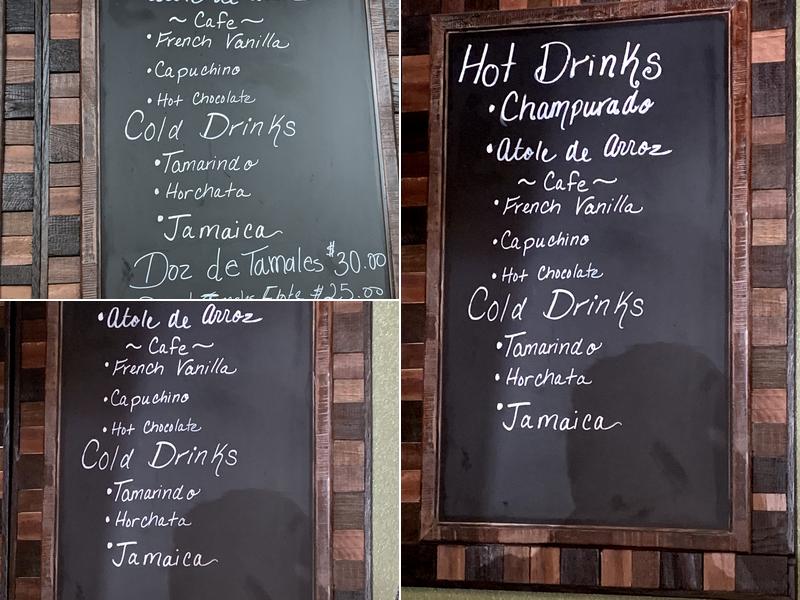 Atole de Arroz
~ Cafe ~
• French Vanilla
• Capuchino
• Hot Chocolate
Cold Drinks
• Tamarindo
• Horchata
• Jamaica
Doz de Tamales $30.00
Tamales Elote $25.00
• Atole de Arroz
~ Cafe ~
• French Vanilla
• Capuchino
• Hot Chocolate
Cold Drinks
• Tamarindo
• Horchata
• Jamaica
Hot Drinks
• Champurado
• Atole de Arroz
~ Cafe ~
• French Vanilla
• Capuchino
• Hot Chocolate
Cold Drinks
• Tamarindo
• Horchata
• Jamaica